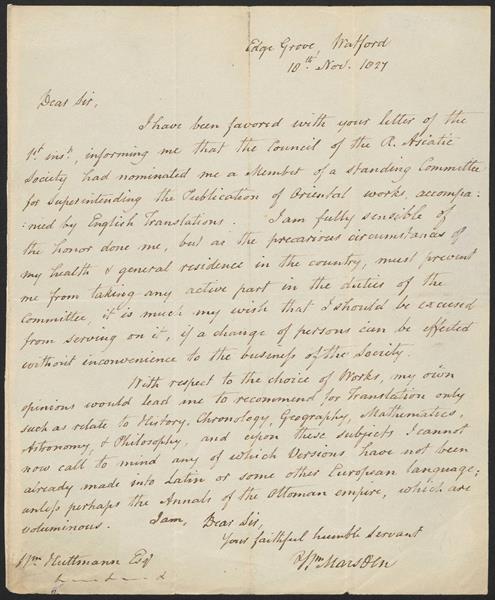 Edge Grove, Watford
10th Nov. 1827
Dear Sir,
I have been favored with your letter of the
1st inst., informing me that the Council of the R. Asiatic
Society had nominated me a Member of a standing Committee
for superintending the Publication of Oriental works, accompa-
:nied by English Translations. I am fully sensible of
the honor done me, but as the precarious circumstances of
my health & general residence in the country, must prevent
me from taking any active part in the duties of the
Committee, it is much my wish that I should be excused
from serving on it, if a change of persons can be effected
without inconvenience to the business of the Society.
With respect to the choice of Works, my own
opinions would lead me to recommend for Translation only
such as relate to History, Chronology, Geography, Mathematics,
Astronomy, & Philosophy, and upon these subjects I cannot
now call to mind any of which Versions have not been
already made into Latin or some other European language;
unless perhaps the Annals of the Ottoman empire, which are
voluminous. I am, Dear Sir,
Your faithful humble servant
Wm Marsden
Wm Huttmann Esqr